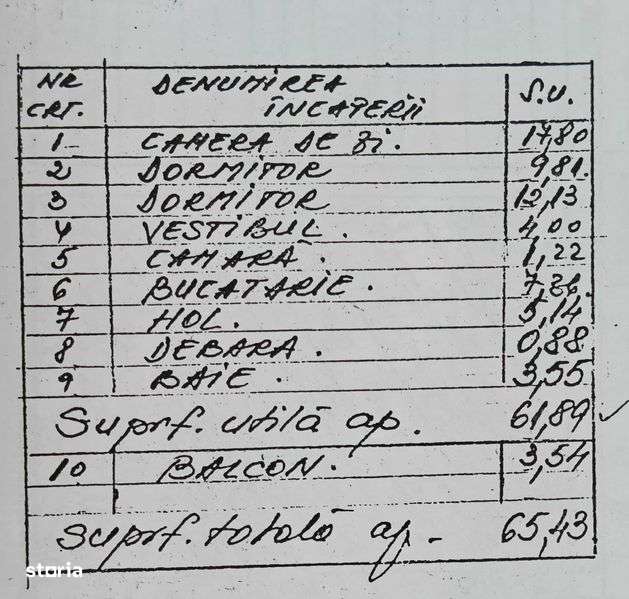 NR CRT. DENUMIREA ÎNCAPERII S.U.
1 CAMERA DE ZI. 17,80
2 DORMITOR 9,81.
3 DORMITOR 12,13
4 VESTIBUL. 4,00
5 CAMARĂ. 1,22
6 BUCATARIE. 7,36.
7 HOL. 5,14
8 DEBARA. 0,88
9 BAIE. 3,55
Suprf. utilă ap. 61,89 ✓
10 BALCON. 3,54
Suprf. totală ap. 65,43
storia